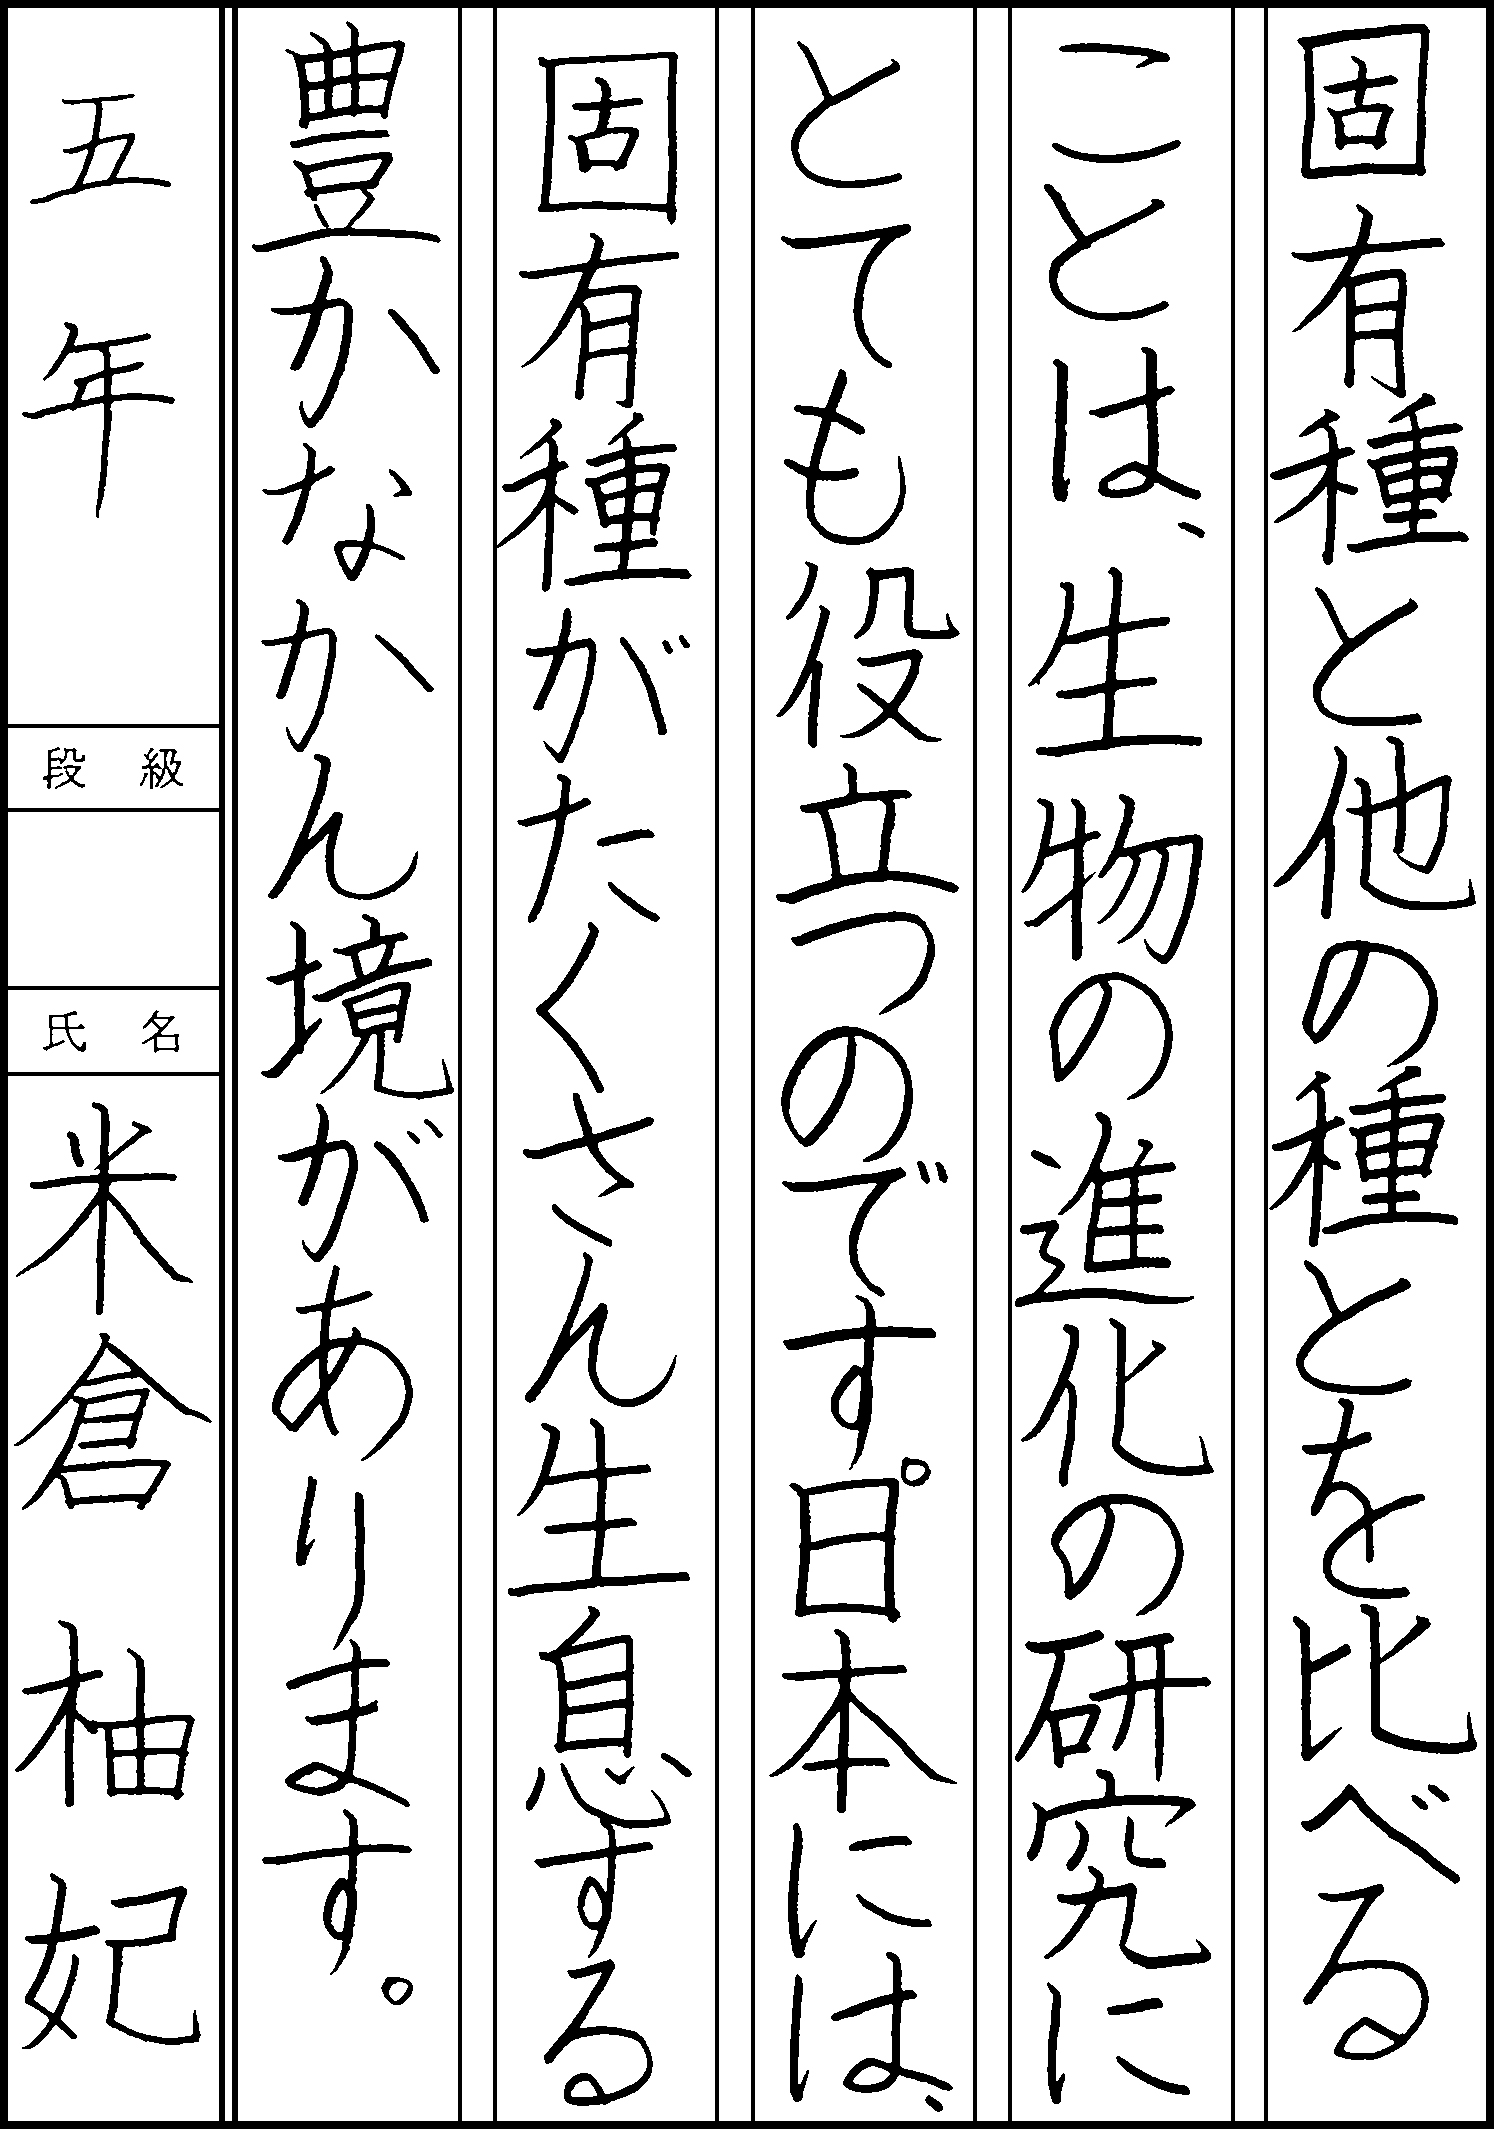 固有種と他の種とを比べる
ことは、生物の進化の研究に
とても役立つのです。日本には、
固有種がたくさん生息する
豊かなかん境があります。
五年
段級
氏名
米倉柚妃